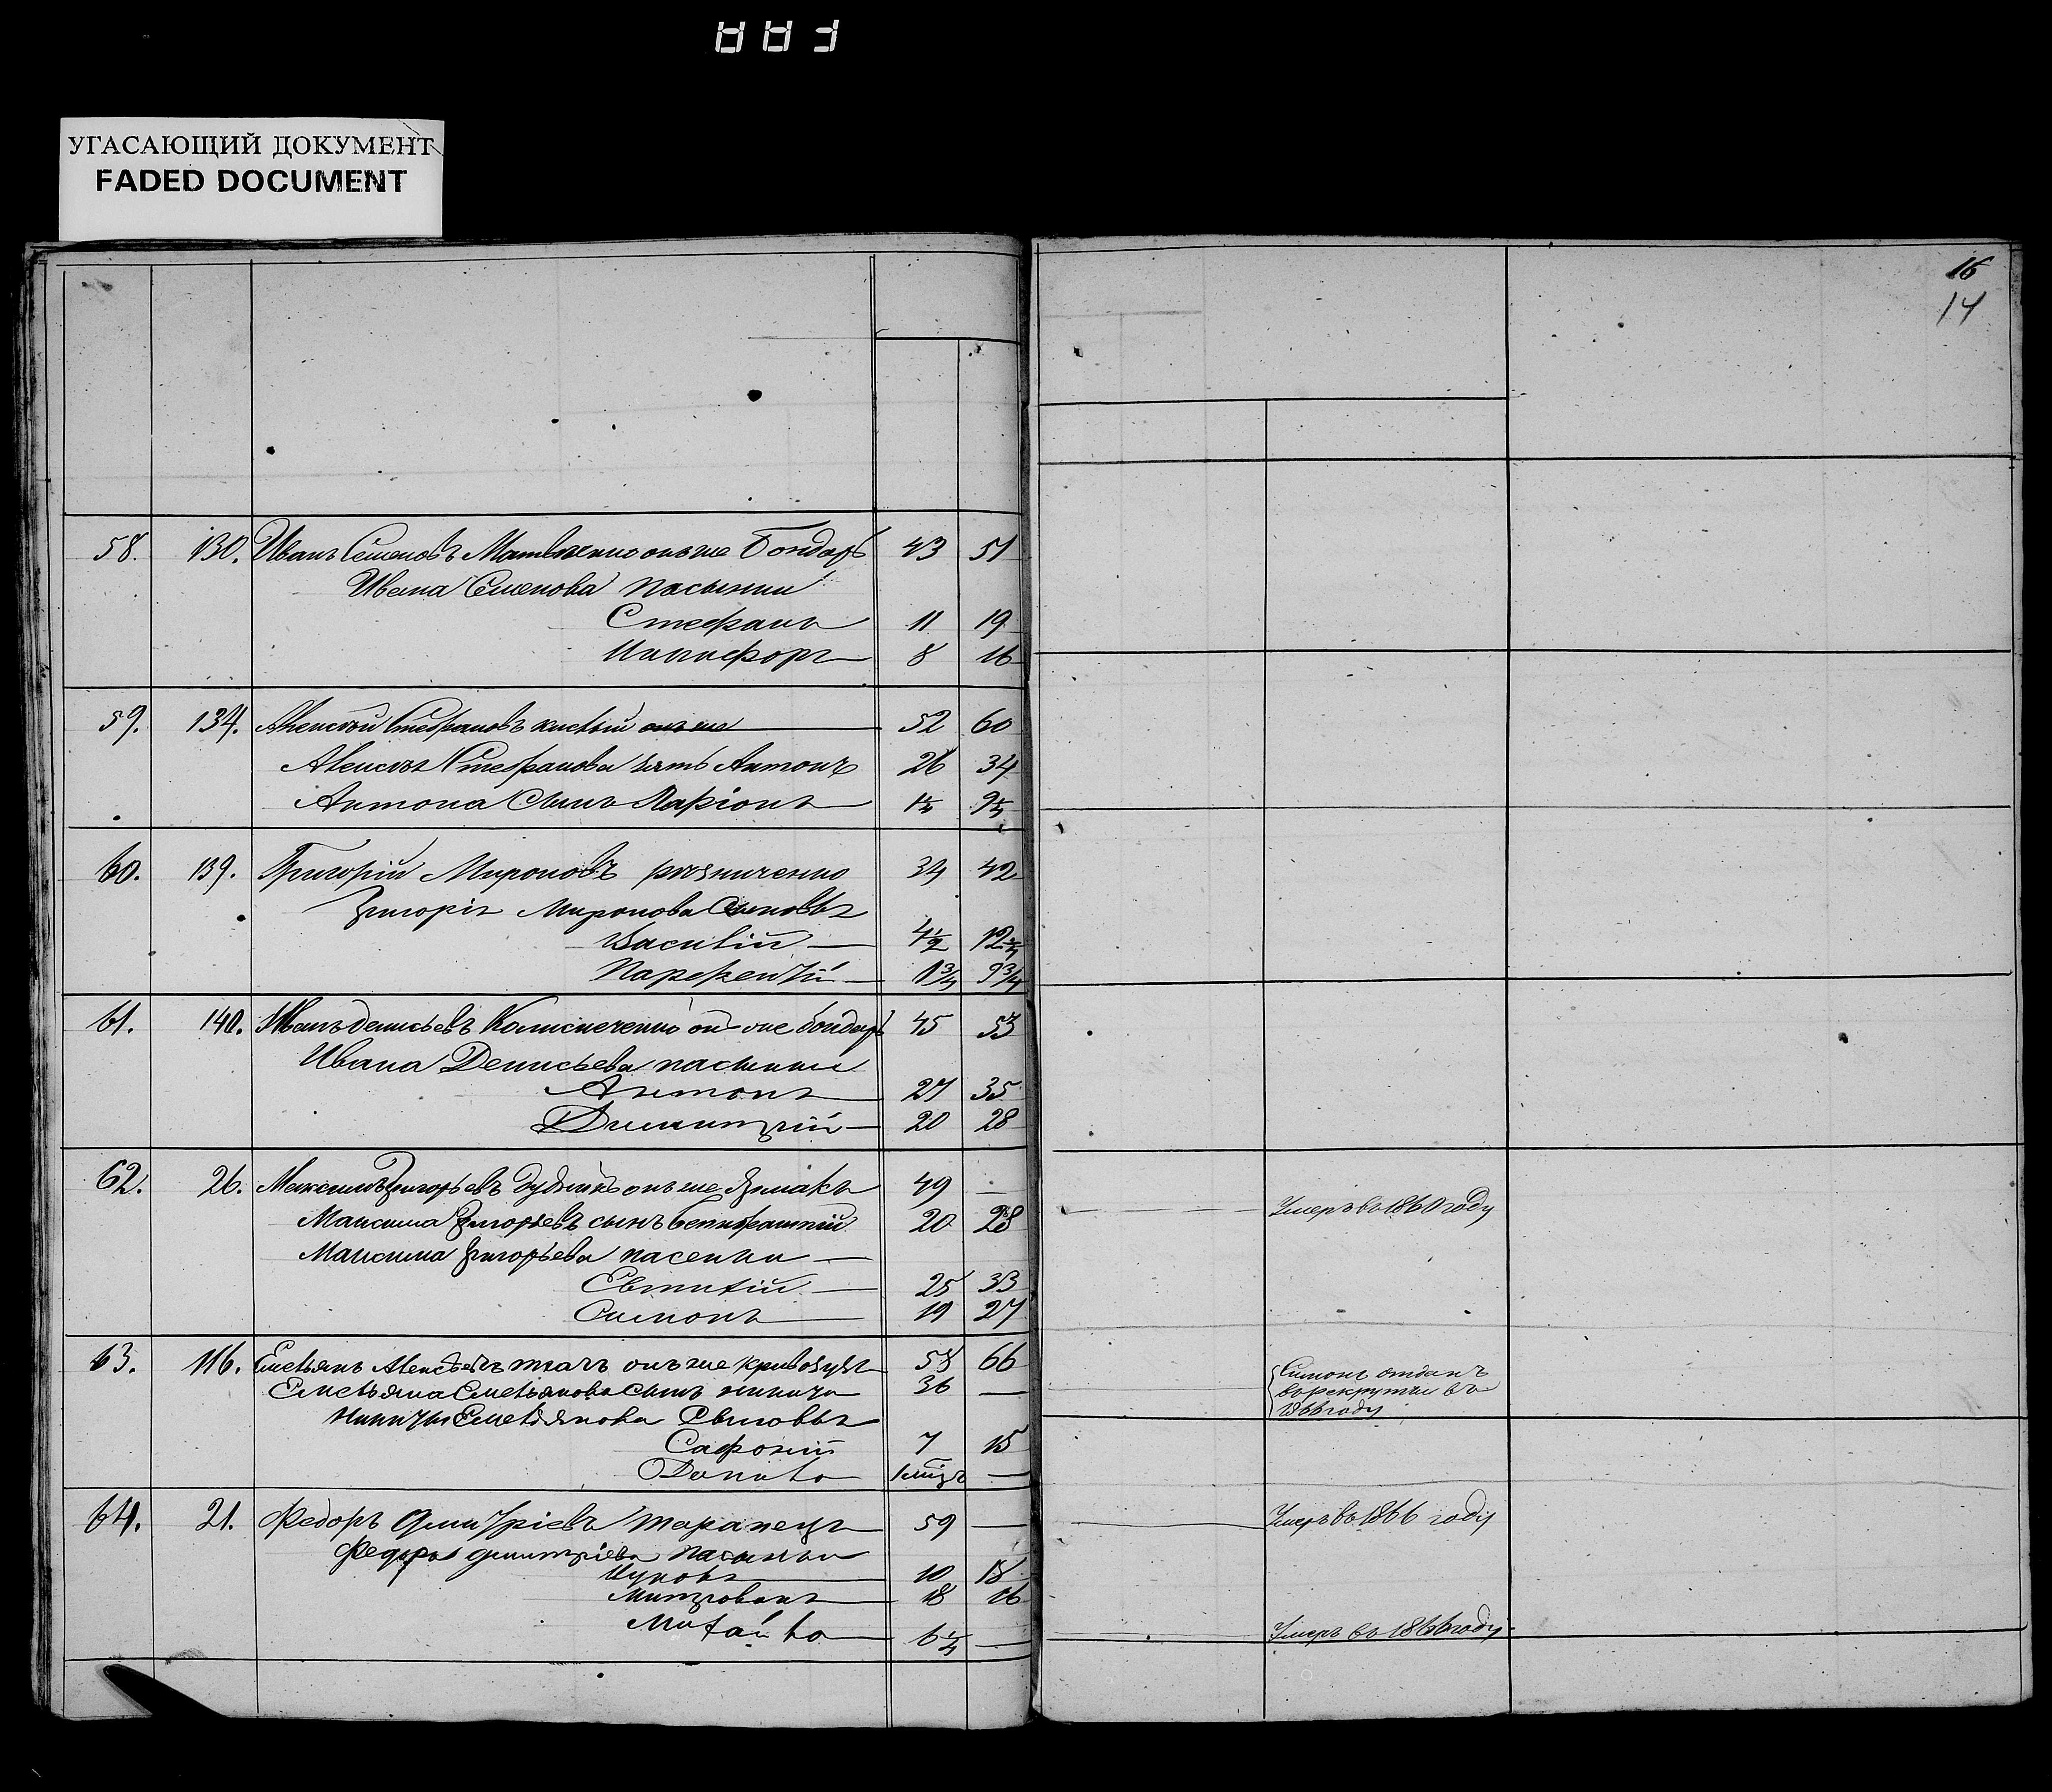 УГАСАЮЩИЙ ДОКУМЕНТ
FADED DOCUMENT
16
14
58. 130. Иванъ Семеновъ Матвѣенко онъ же Бондарь 43 51
Ивана Семенова пасынки
Стефанъ 11 19
Никифоръ 8 16
59. 134. Алексѣй Стефановъ онъ же 52 60
Алексѣя Стефанова зять Антонъ 26 34
Антона сынъ Ларіонъ 1¼ 9¼
60. 139. Григорій Мироновъ 34 42
Григорія Миронова сыновья
Василій 4½ 12½
Парфентій 1¾ 9¾
61. 140. Иванъ Денисьевъ онъ же бондарь 45 53
Ивана Денисьева пасынки
Антонъ 27 35
Димитрій 20 28
62. 26. Максимъ Григорьевъ онъ же 49 — Умеръ въ 1860 году
Максима Григорьевъ сынъ 20 28
Максима Григорьева пасенки
Евтихій 25 33
Симонъ 19 27
63. 116. Емельянъ Алексѣевъ ткачъ онъ же 58 66
Симонъ отданъ
въ рекруты въ
1866 году
Емельяна Емельянова сынъ Никита 36 —
Никиты Емельянова сыновья
Сафоній 7 15
Данило —
64. 21. Федоръ Дмитріевъ Таранецъ 59 — Умеръ въ 1866 году
Федора Дмитріева пасынки
10 18
Митрованъ 18 16
Михайло 6¼ — Умеръ въ 1866 году